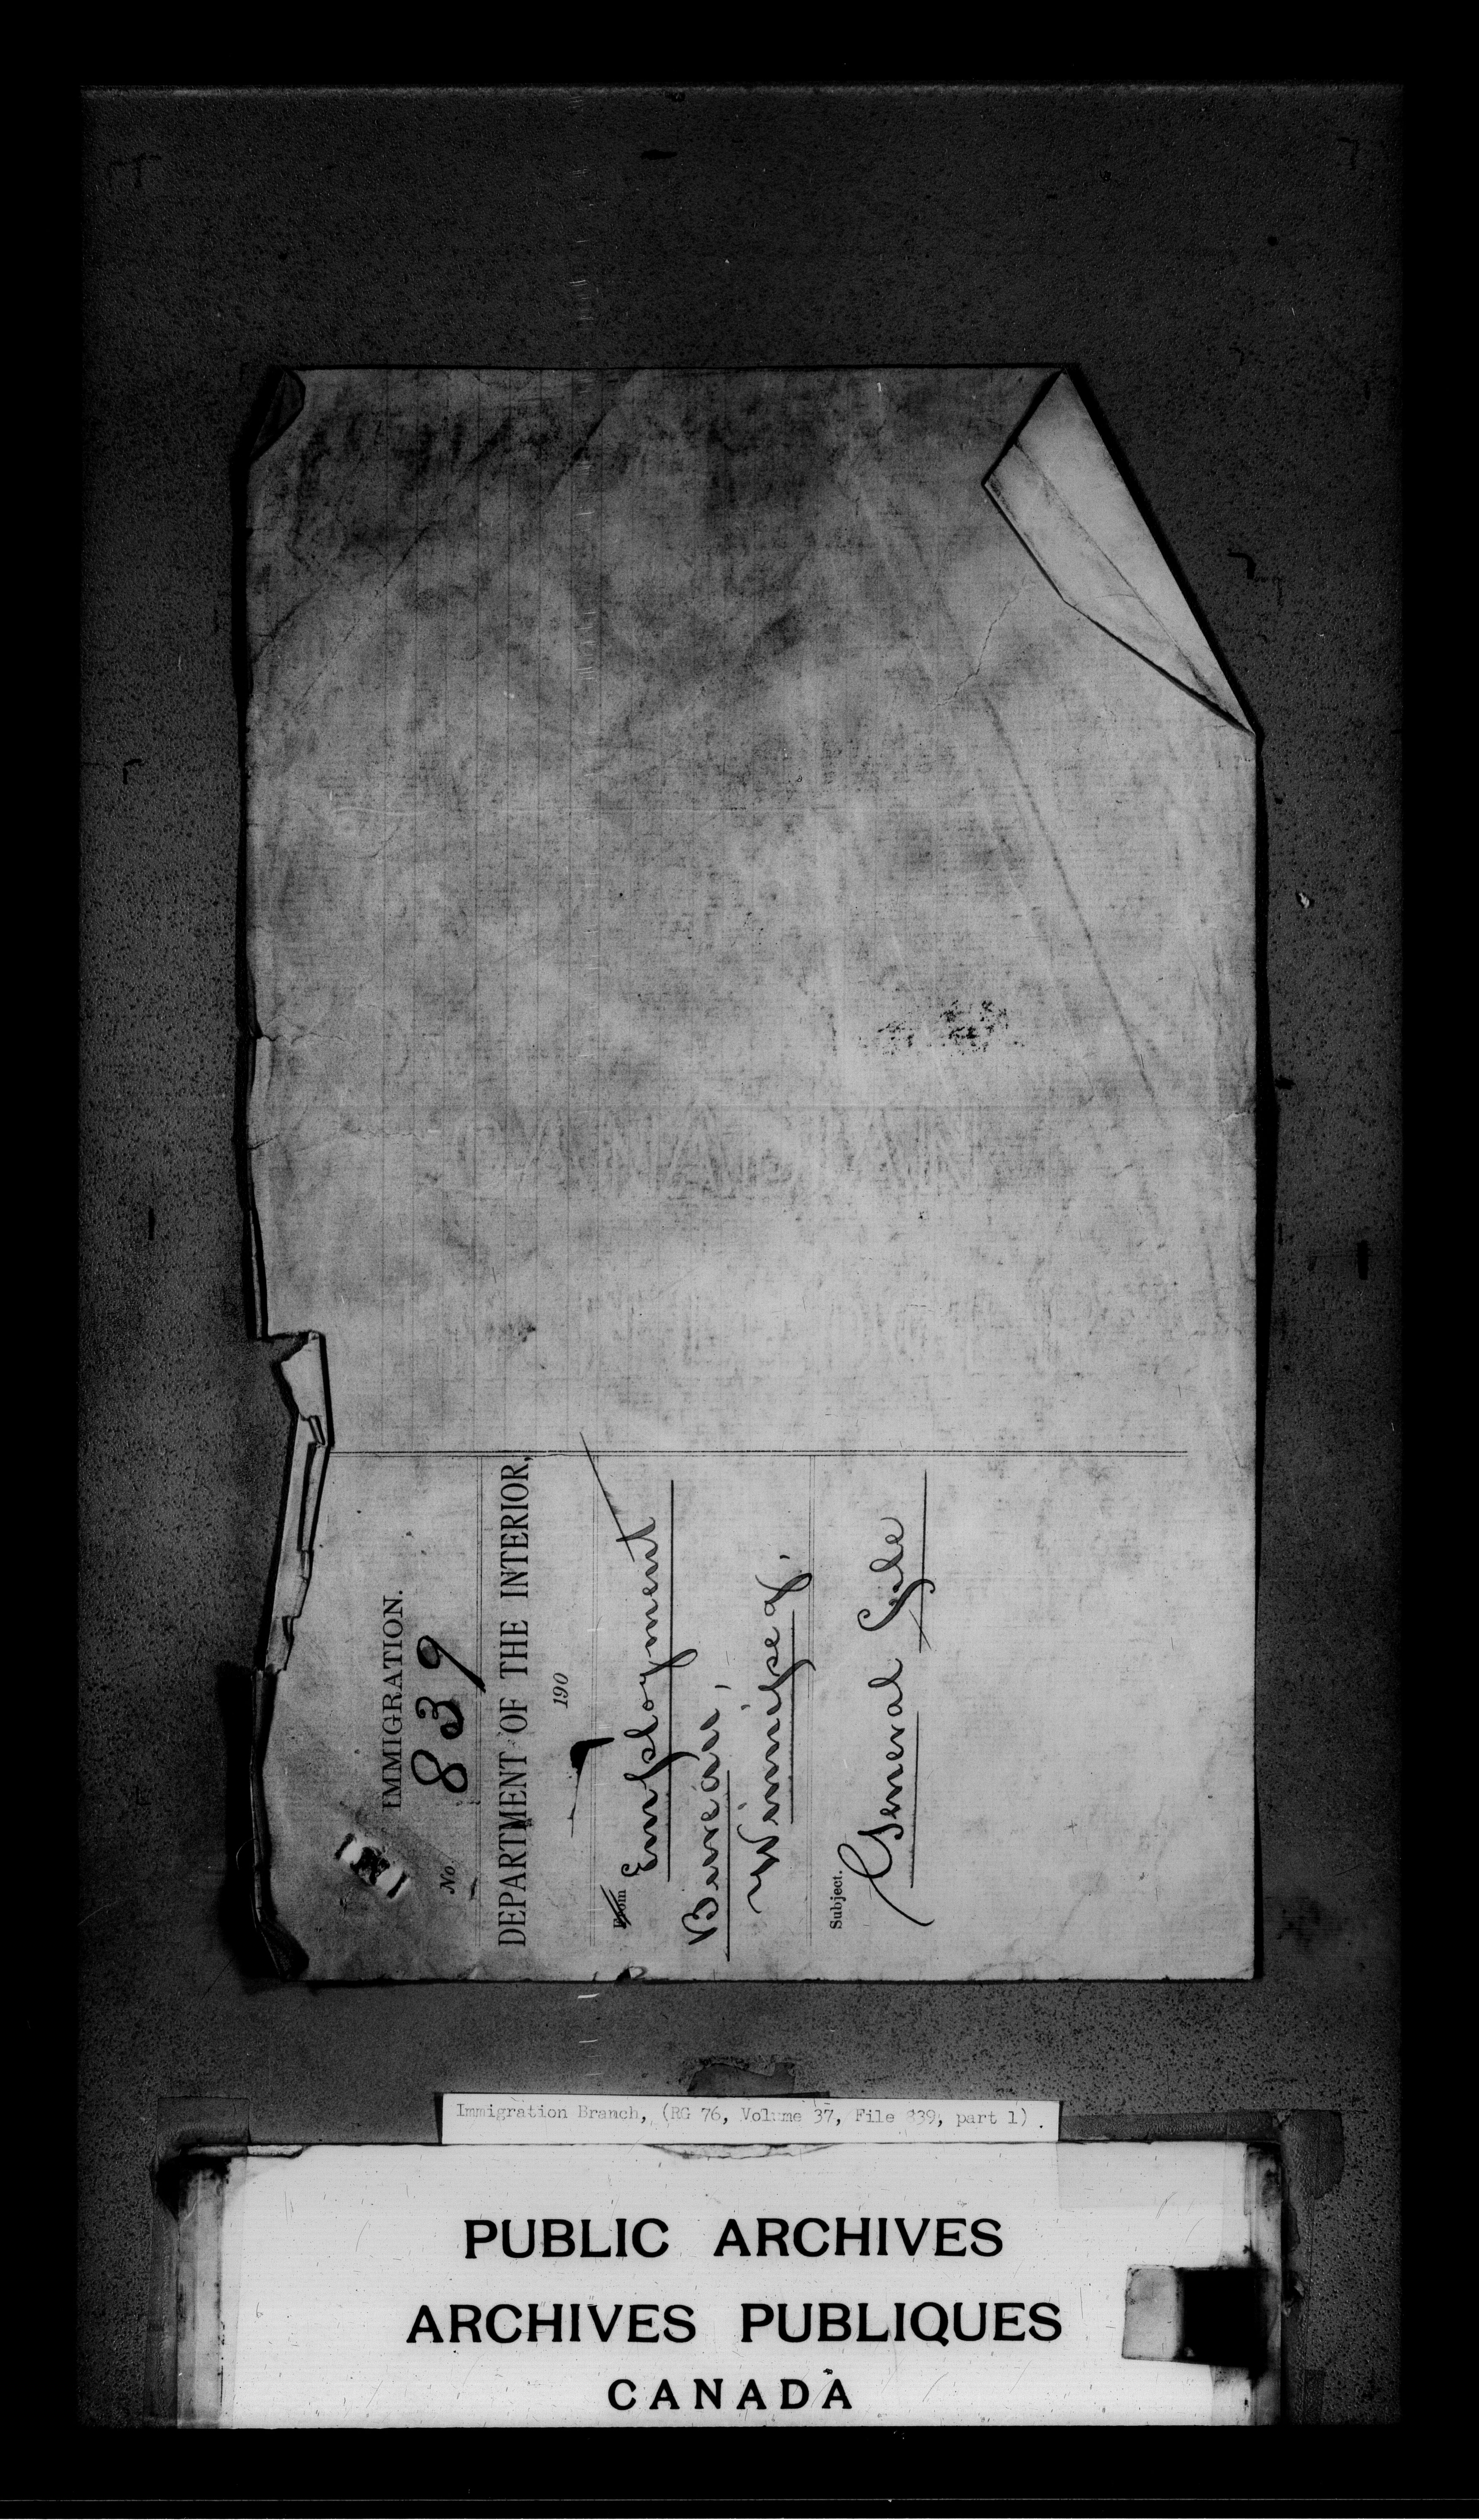 IMMIGRATION.
No. 839
DEPARTMENT OF THE INTERIOR,
190
From Employment
Bureau,
Winnipeg.
Subject.
General File
Immigration Branch, (RG 76, Volume 37, File 839, part 1).
PUBLIC ARCHIVES
ARCHIVES PUBLIQUES
CANADA